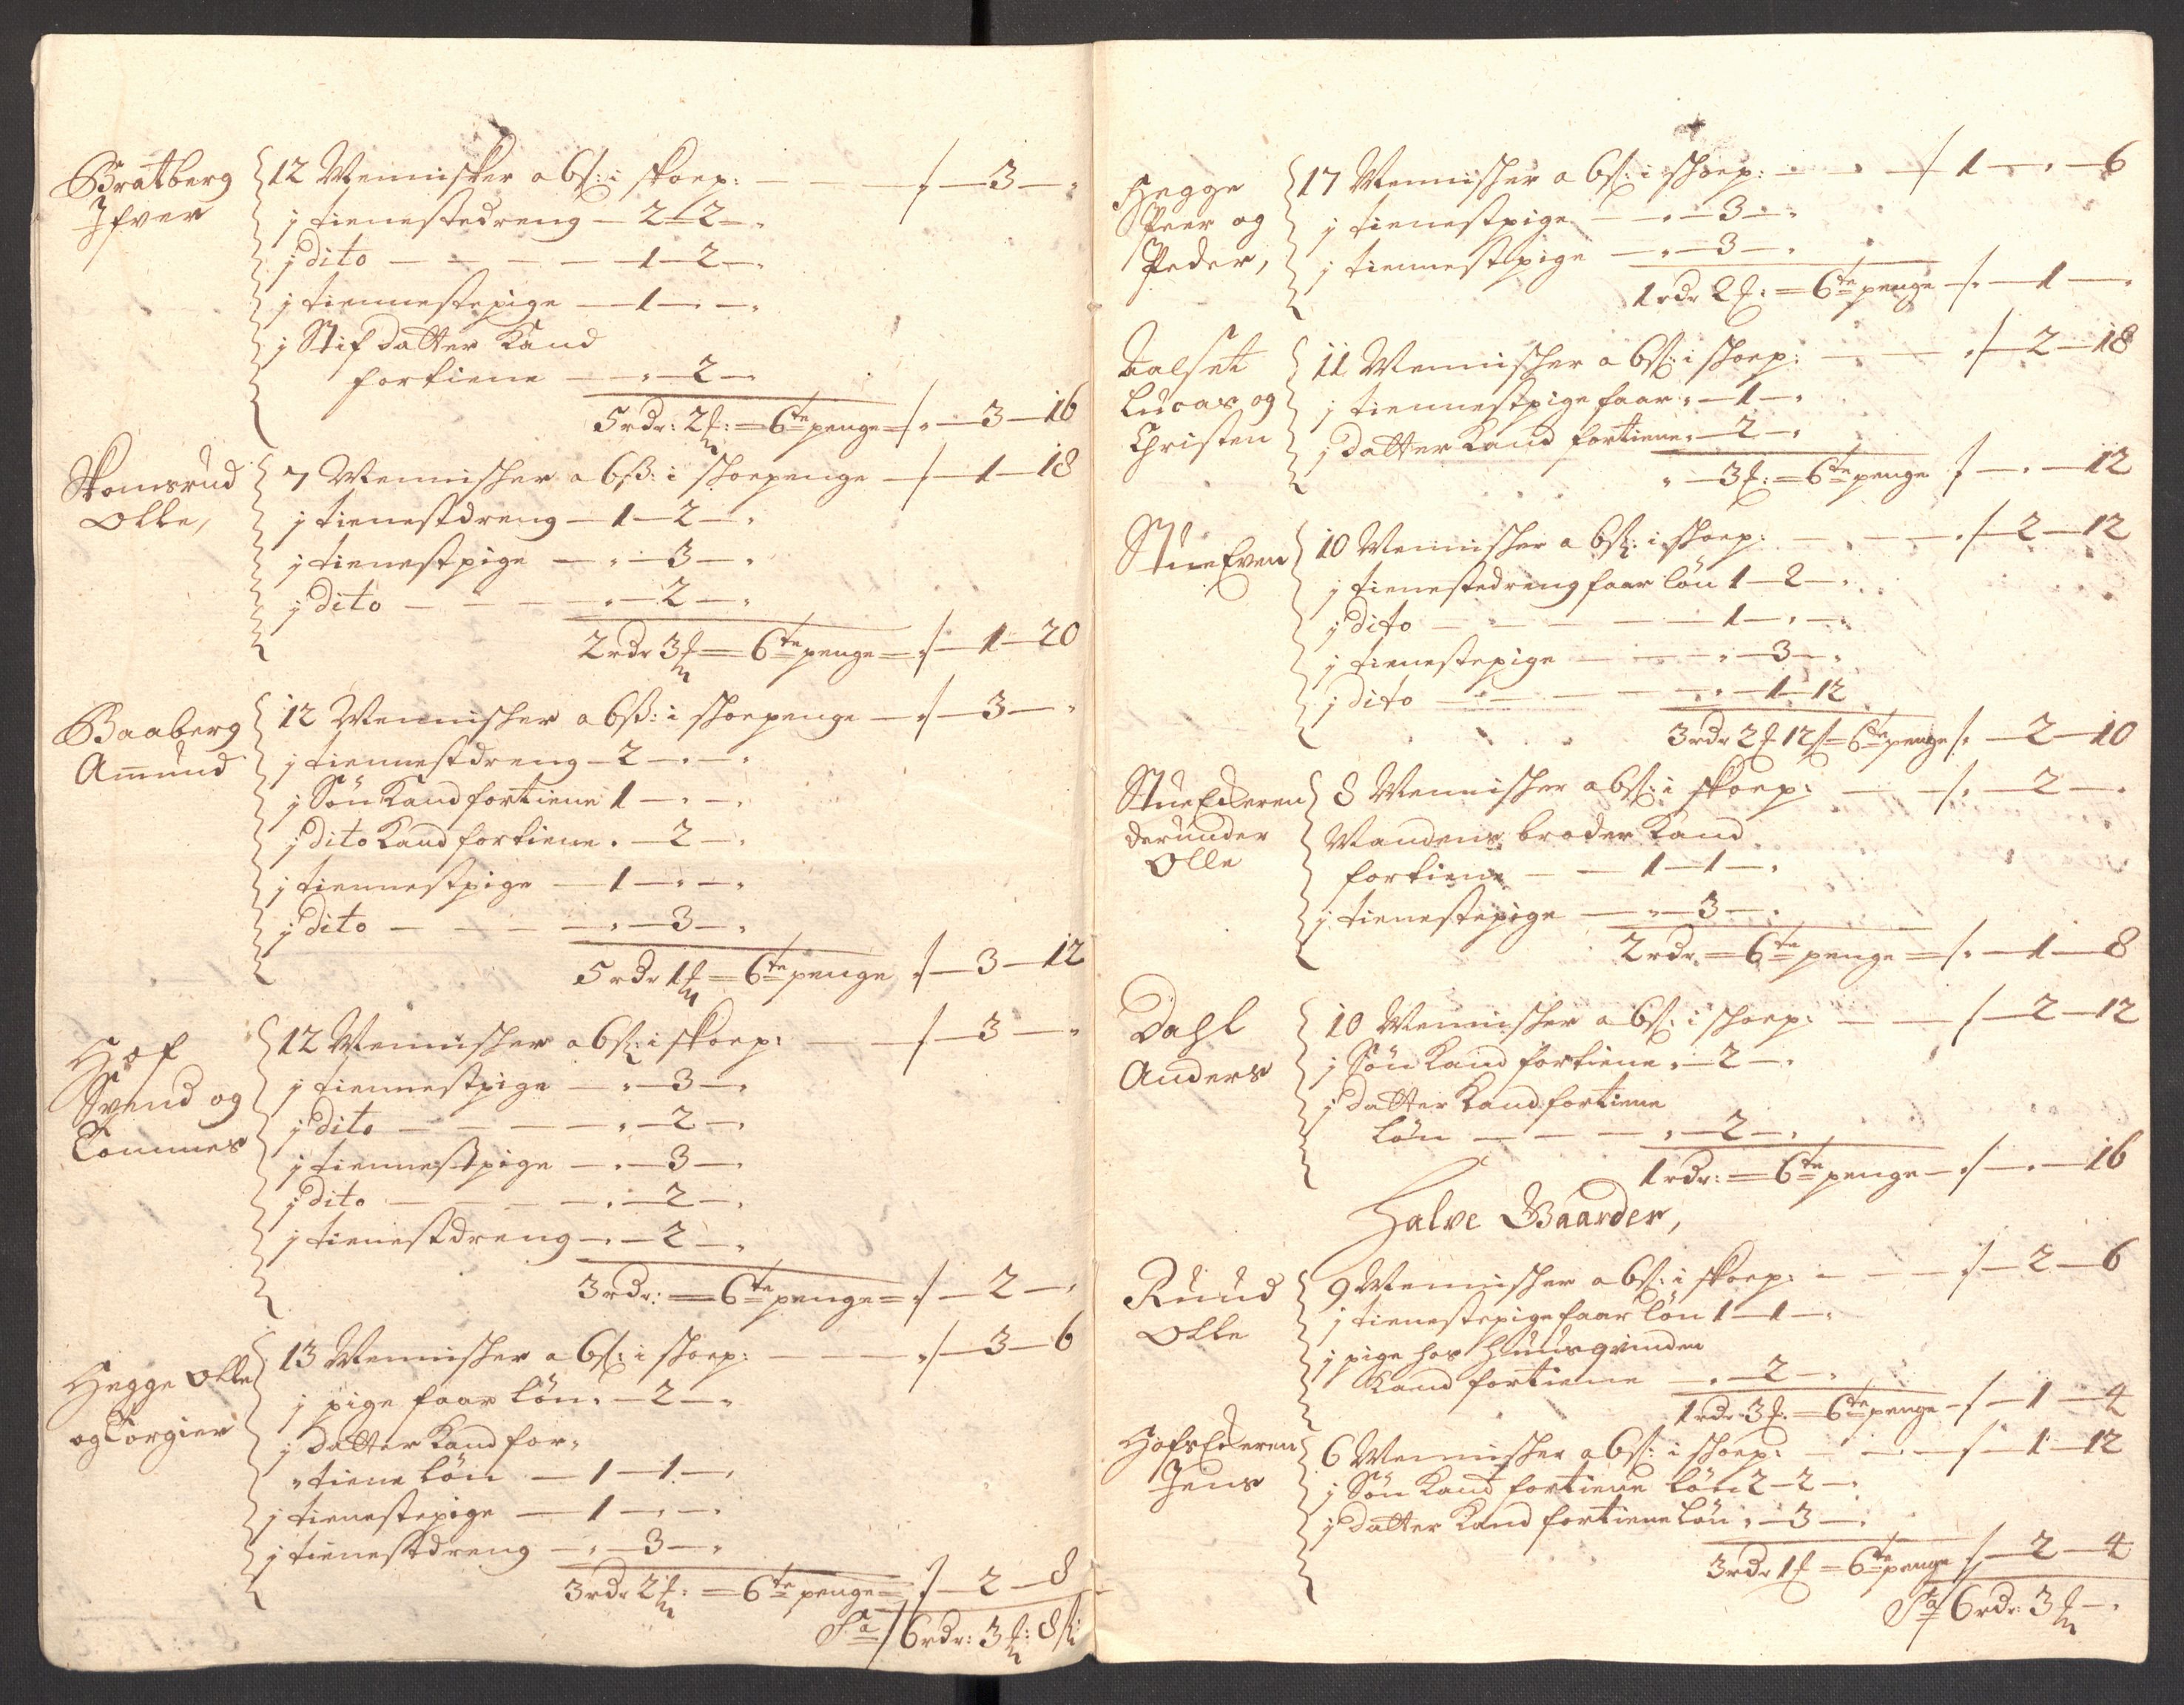 Bratberg
Ifver
12 Mennisker a 6 s: i skoep: — 3 — "
j tienestedreng — 2 — 2 — "
j dito — 1 — 2 — "
j tiennestepige — 1 — " — "
j Stif datter Kand
fortiene — " — 2 — "
5 rdr: 2 = 6te penge = " — 3 — 16
Skomsrud
Olle,
7 Mennisker a 6 ß: i skoepenge — 1 — 18
j tienestdreng — 1 — 2 — "
j tienestpige — " — 3 — "
j dito — " — 2 — "
2 rdr 3 = 6te penge = — 1 — 20
Baaberg
Amund
12 Mennisker a 6 ß: i skoepenge — 3 — "
j tiennestdreng — 2 — " — "
j Søn Kand fortiene 1 — " — "
j dito Kand fortiene " — 2 — "
j tiennestpige — 1 — " — "
j dito — " — 3 — "
5 rdr 1 = 6te penge — 3 — 12
Hof
Svend og
Tommes
12 Mennisker a 6 s: i skoep: — 3 — "
j tiennestpige — " — 3 — "
j dito — " — 2 — "
j tiennestpige — " — 3 — "
j dito — " — 2 — "
j tienestdreng — " — 2 — "
3 rdr: = 6te penge = — 2 — "
Hegge Olle
og Torgier
13 Mennisker a 6 s: i skoep: — 3 — 6
j pige faar løn " — 2 — "
j datter Kand for„
„tiene løn — 1 — 1 — "
j tienestepige — 1 — " — "
j tienestdreng — " — 3 — "
3 rdr 2 : = 6te penge = — 2 — 8
Sa 6 rdr: 3 : 8 s
Hegge
Peer og
Peder,
17 Mennisker a 6 s: i skoep: — 1 — " — 6
j tienestpige — " — 3 — "
j tiennestpige — " — 3 — "
1 rdr 2 : = 6te penge — " — 1 — "
Dalset
Lucas og
Christen
11 Mennisker a 6 s: i skoep: — 2 — 18
j tiennestpige faar " — 1 — "
j datter Kand fortiene " — 2 — "
" — 3 : = 6te penge — " — 12
Stue Even
10 Mennisker a 6 s: i skoep: — 2 — 12
j tienestedreng faar løn 1 — 2 — "
j dito — 1 — " — "
j tienestepige — " — 3 — "
j dito — " — 1 — 12
3 rdr 2 12 s = 6te penge " — 2 — 10
Stue Ederen
derunder
Olle
8 Mennisker a 6 s: i skoep: — " — 2 — "
Mandens broder Kand
fortiene — 1 — 1 — "
j tienestepige — " — 3 — "
2 rdr. = 6te penge = " — 1 — 8
Dahl
Anders
10 Mennisker a 6 s: i skoep: — 2 — 12
j Søn Kand fortiene " — 2 — "
j datter Kand fortiene
løn — " — 2 — "
1 rdr: = 6te penge — " — 16
Halve Gaarder,
Ruud
Olle
9 Mennisker a 6 s: i skoep: — 2 — 6
j tienestepige faar løn 1 — 1 — "
j pige hos huusqvinden
Kand fortiene — " — 2 — "
1 rdr 3 : = 6te penge — 1 — 4
Hofs Ederen
Jens
6 Mennisker a 6 s: i skoep: — 1 — 12
j Søn Kand fortiene løn 2 — 2 — "
j datter Kand fortiene løn " — 3 — "
3 rdr 1 = 6te penge — 2 — 4
Sa 6 rdr: 3 — "